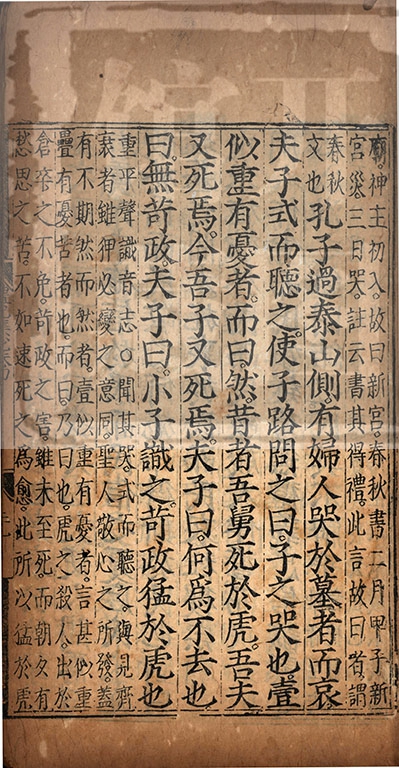 廟。神主初入。故曰新宮。春秋書二月甲子新
宮災三日哭。註云書其得禮。此言故曰者。謂
春秋
文也
孔子過泰山側。有婦人哭於墓者而哀
夫子式而聽之。使子路問之曰。子之哭也。壹
似重有憂者。而曰。然。昔者吾舅死於虎。吾夫
又死焉。今吾子又死焉。夫子曰。何爲不去也
曰。無苛政。夫子曰。小子識之。苛政猛於虎也
重平聲識音志○聞其哭。式而聽之。與見齊
衰者雖狎必變之意同。聖人敬心之所發。蓋
有不期然而然者。壹似重有憂者。言甚似重
疊有憂苦者也。而曰。乃曰也。虎之殺人。出於
倉卒之不免。苛政之害。雖未至死。而朝夕有
愁思之苦。不如速死之爲愈。此所以猛於虎